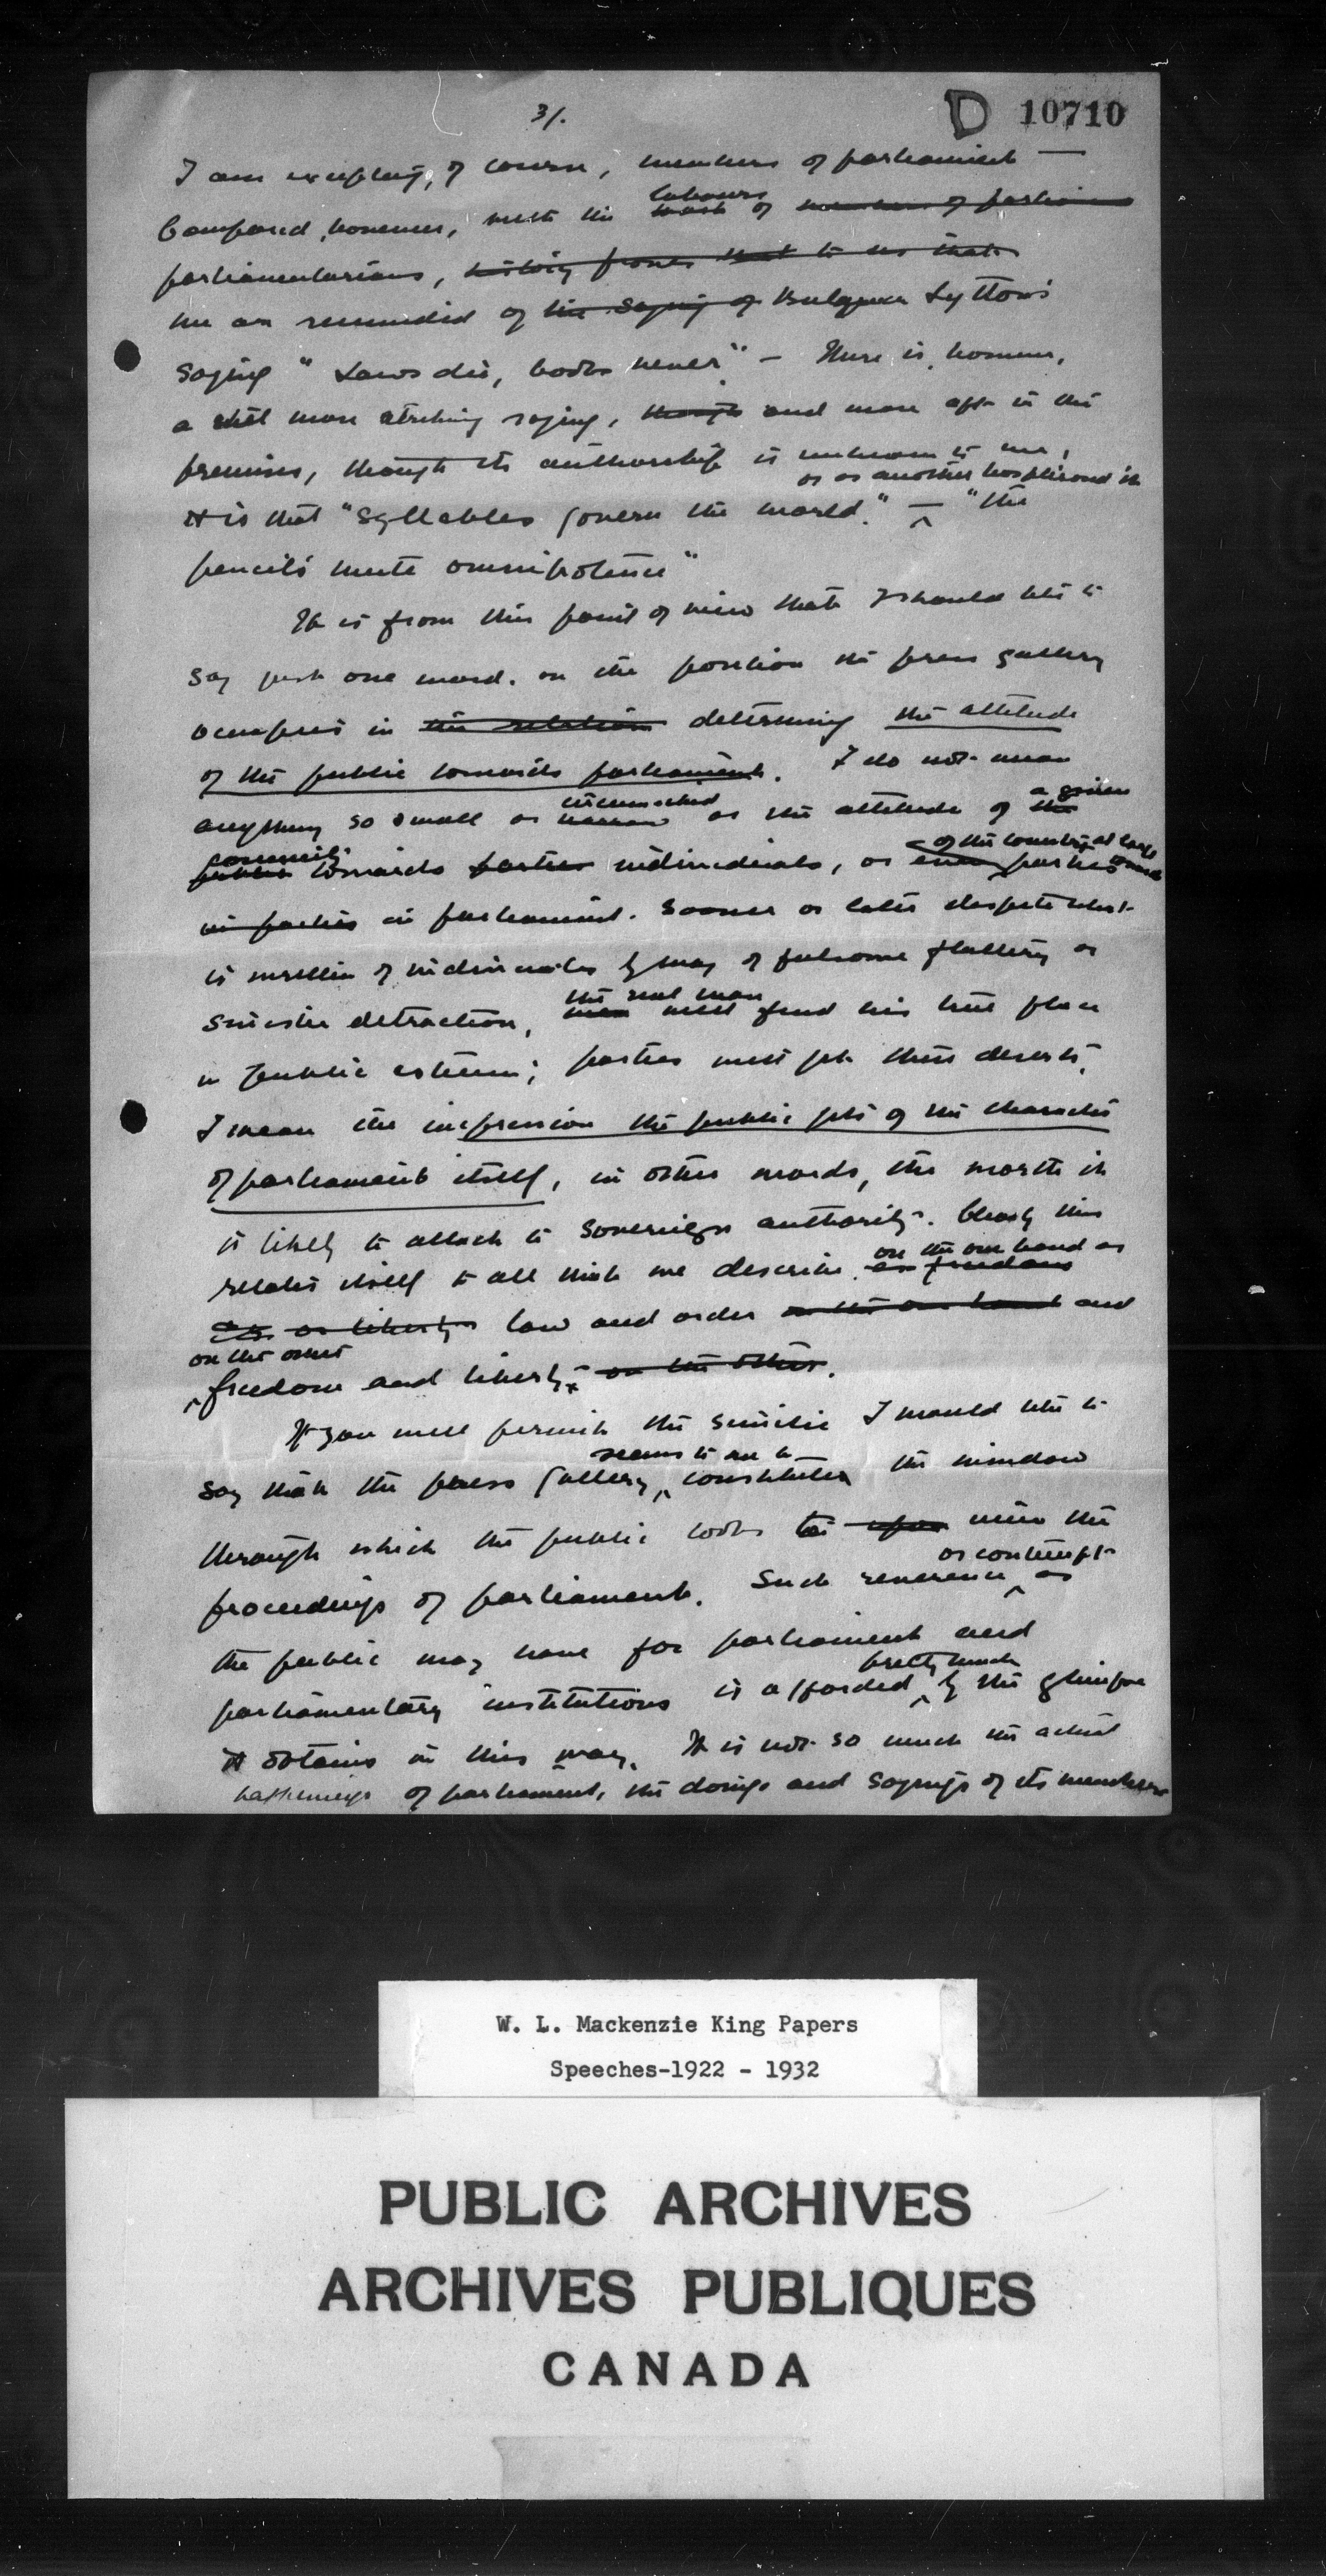 3/.
D 10710
I am excepting, of course, members of parliament —
labours
Compared, however, with the work of members of parliam
parliamentarians, history proves that to us that
we are reminded of the saying of Bulwer Lytton's
saying "Laws die, books never" — There is, however,
a still more striking saying, though and more apt in the
premises, though its authorship is unknown to me,
or as another has phrased it
It is that "Syllables govern the world." — "the
pencil's mute omnipotence"
It is from this point of view that I should like to
say just one word. on the position the press gallery
occupies in the relation determining the attitude
of the public towards parliament. I do not mean
circumscribed a given
anything so small or narrow as the attitude of the
community of the country at large
public towards parties individuals, or even parties
in parties in parliament. Sooner or later despite what
is written of individuals by way of fulsome flattery or
the real man
sinister detraction, men will find his true place
in public esteem; parties will get their deserts.
I mean the impression the public gets of the character
of parliament itself, in other words, the worth it
is likely to attach to sovereign authority. Clearly this
on the one hand as
relates itself to all that we describe as freedom
as liberty law and order on the one hand and
on the other
freedom and liberty on the other.
If you will permit the simile I would like to
seems to me to
say that the press gallery constitutes the window
through which the public looks to upon view the
or contempt
proceedings of parliament. Such reverence as
the public may have for parliament and
pretty much
parliamentary institutions is afforded by the glimpse
it obtains in this way. It is not so much the actual
happenings of parliament, the doings and sayings of its members
W. L. Mackenzie King Papers
Speeches-1922 - 1932
PUBLIC ARCHIVES
ARCHIVES PUBLIQUES
CANADA